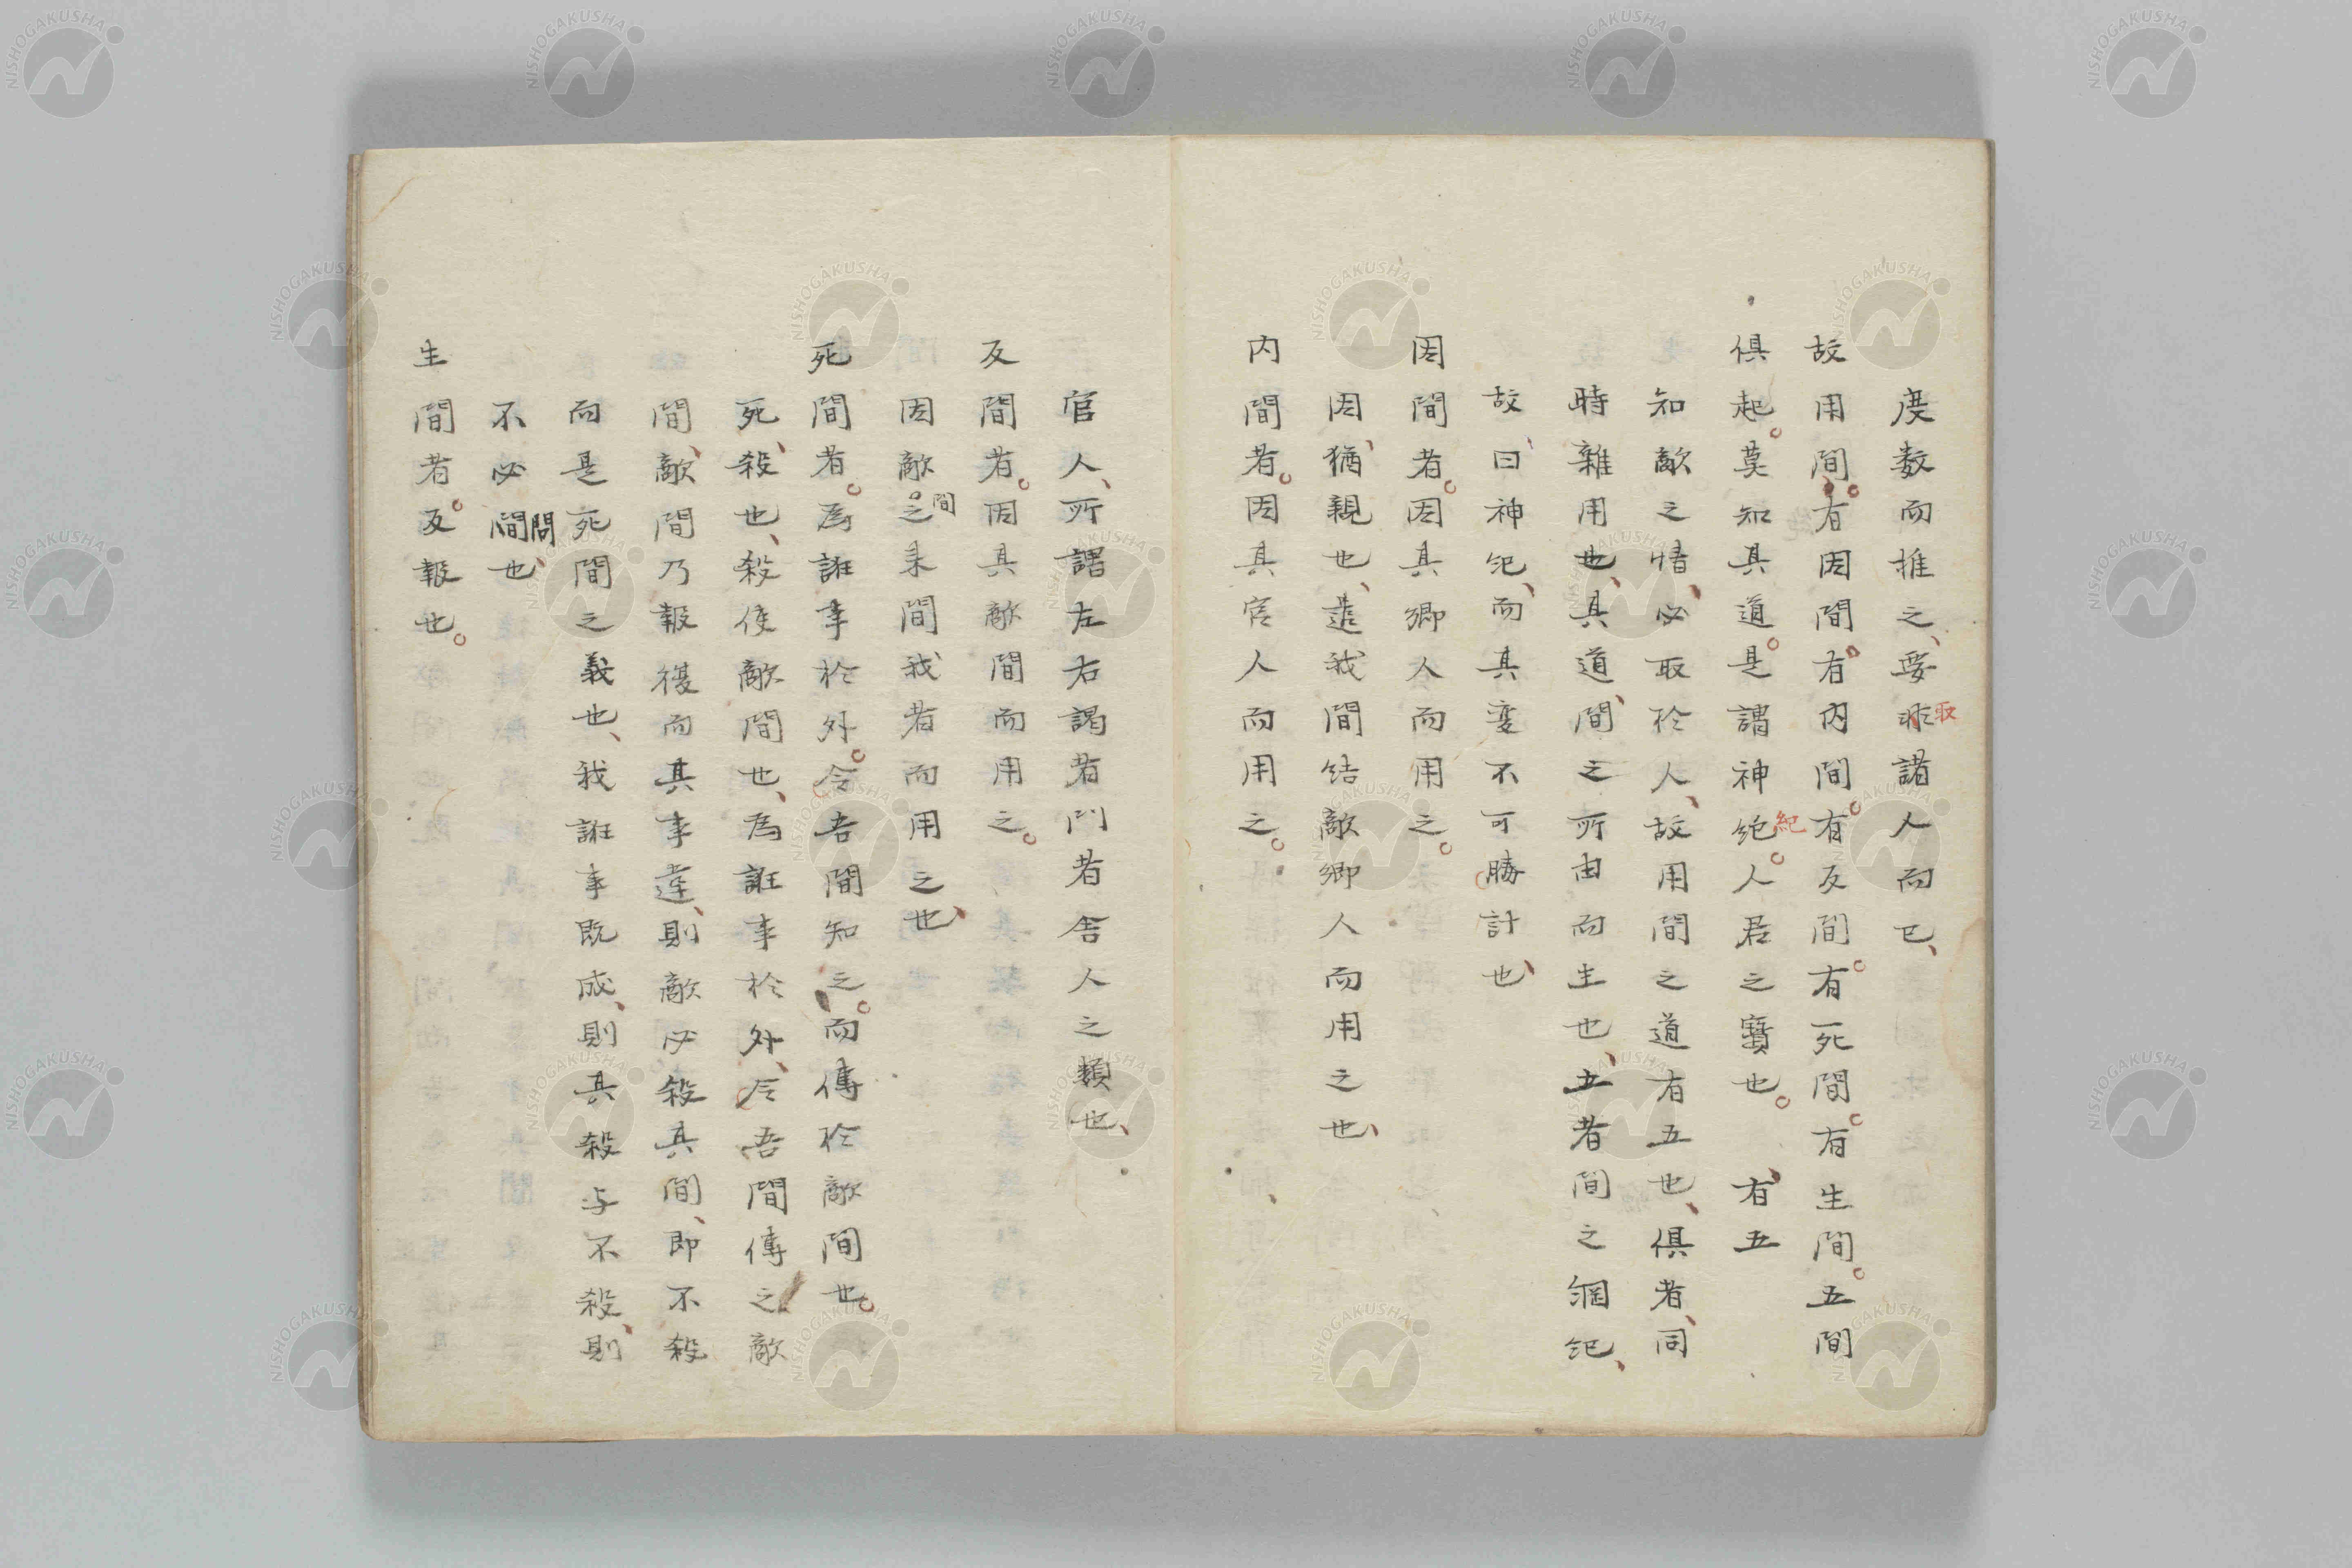 度数而推之、要乖取諸人而已、
故用間。有因間。有内間。有反間。有死間。有生間。五間
俱起。莫知其道。是謂神絶紀。人君之寶也。 有五
知敵之情、必取於人、故用間之道有五也、俱者、同
時雜用也、其道、間之所由而生也、五者間之綱紀、
故曰神紀、而其變不可勝計也、
因間者。因其鄉人而用之。
因、猶親也、遣我間結敵鄉人而用之也、
内間者。因其官人而用之。
官人、所謂左右謁者門者舍人之類也、
反間者。因其敵間而用之。
因敵之間来間我者而用之也、
死間者。為誑事於外。令吾間知之。而傳於敵間也。
死、殺也、殺使敵間也、為誑事於外、令吾間傳之敵
間、敵間乃報復而其事違、則敵必殺其間、即不殺
而是死間之義也、我誑事既成、則其殺与不殺、則
不必間問也、
生間者。反報也。
NISHOGAKUSHA